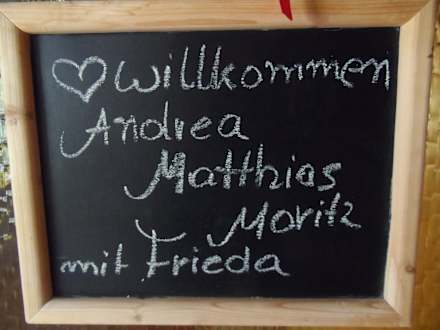 ♡ Willkommen
Andrea
Matthias
Moritz
mit Frieda